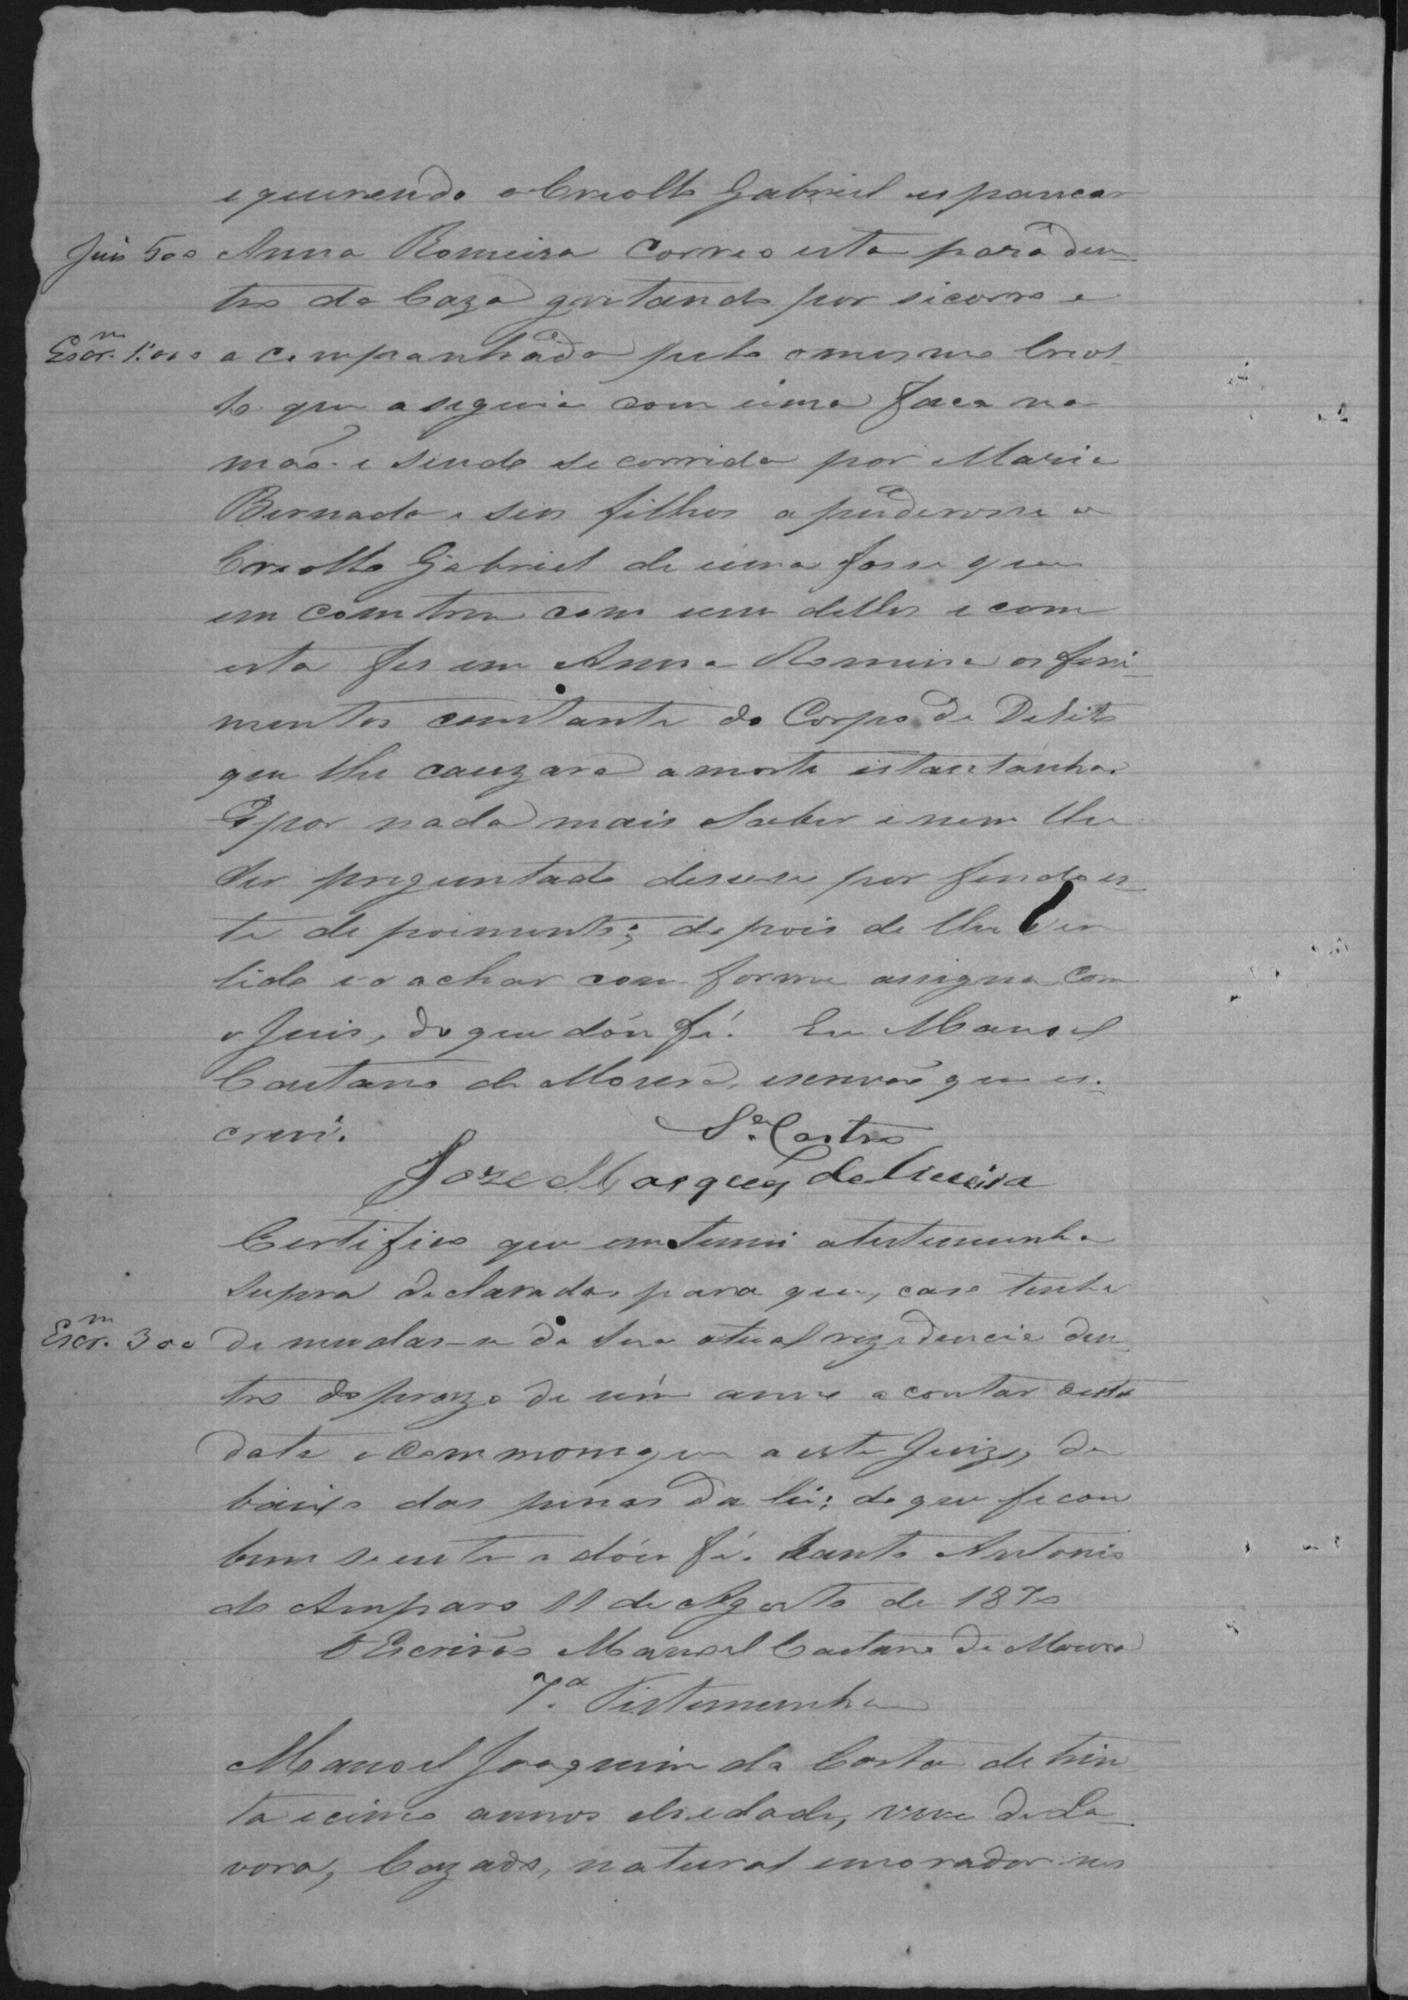 e querendo o Creolo Gabriel espancar
Juis 500 Anna Romeira correo esta para den-
tro da Caza gritando por sicorro e
Escr.m 1:000 a companhada pelo o mesmo Creol-
lo que a seguia com uma faca na
mão e sendo secorrida por Maria
Bernada e seos filhos apuderouse o
Creollo Gabriel de uma fosse que
em comtrou com um delles e com
esta fes em Anna Romeira os feri-
mentos constante do Corpo de Delito
que lhe cauzarão a morte istantanha
E por nada mais saber e nem lhe
ser preguntado deuse por findo es-
te depoimento; depois de lhe ser
lido e o achar comforme assigna com
o Juis, do que dou fé. Eu Manoel
Caetano de Moura, escrivão que es-
crevi.
S.a Castro
Joze Marques de Oliveira
Certifico que emtemei a testemunha
supra declarada para que, caso tenha
Escr.m 300 de mudar-se da sua atual rezidencia den-
tro do prazo de um anno a contar desta
data o commonique a este Juizo, de
baixo das penas da lei; do que ficou
bem siente e dou fé. Santo Antonio
do Amparo 11 de Agosto de 1870
O Escrivão Manoel Caetano de Moura
7.a Testemunha
Manoel Joaquim da Costa de trin
ta e cinco annos de idade, vive de La-
vora, Cazado, natural e morador nes